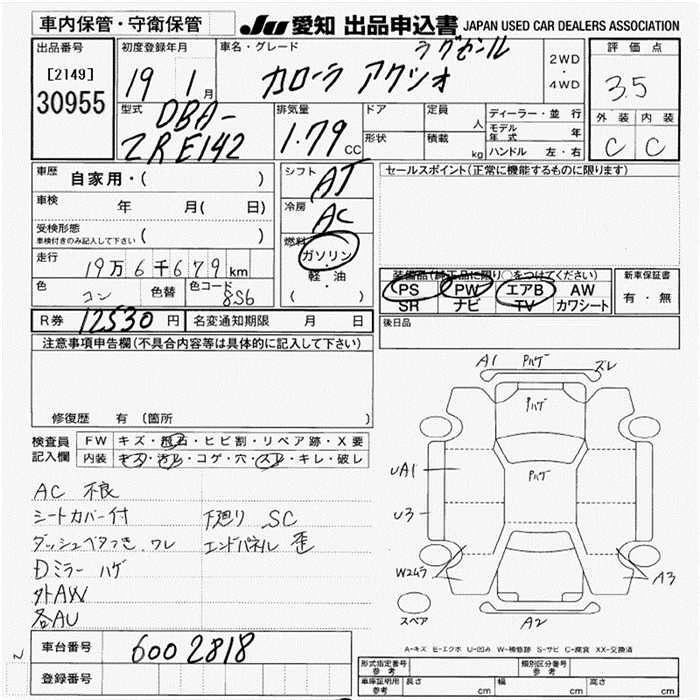 車内保管・守衛保管
JU 愛知 出品申込書 JAPAN USED CAR DEALERS ASSOCIATION
出品番号
[2149]
30955
初度登録年月
19 1月
車名・グレード
ラグゼール
カローラ アクシオ
2WD
・
4WD
評価点
3.5
外装 内装
C C
型式
DBA-
ZRE142
排気量
1.79 CC
ドア
形状
定員 人
積載 kg
ディーラー・並行
モデル年式 年
ハンドル 左・右
車歴 自家用・( )
車検 年 月( 日)
受検形態
車検付きのみ記入して下さい ( )
走行 19万6千679km
色 コン 色替 色コード 8S6
シフト AT
冷房 AC
燃料
ガソリン
・
軽・油
( )
セールスポイント(正常に機能するものに限ります)
装備品(純正品に限り○をつけてください)
PS PW エアB AW
SR ナビ TV カワシート
新車保証書
有・無
R券 12530円 名変通知期限 月 日
後日品
注意事項申告欄(不具合内容等は具体的に記入して下さい)
修復歴 有 (箇所 )
検査員
記入欄
FW キズ・飛石・ヒビ割・リペア跡・X要
内装 キズ・汚レ・コゲ・穴・スレ・キレ・破レ
AC 不良
シートカバー付
ダッシュベタつき、ワレ
Dミラー ハゲ
外AW
各AU
下廻り SC
エンドパネル 歪
A1 Pハゲ ズレ
Pハゲ
Pハゲ
UA1
U3
W2ムラ
A3
スペア
A2
A-キズ E-エクボ U-凹み W-補修跡 S-サビ C-腐食 XX-交換済
車台番号 6002818
登録番号
形式指定番号
参考
類別区分番号
参考
車庫証明用
参考
長さ cm 幅 cm 高さ cm